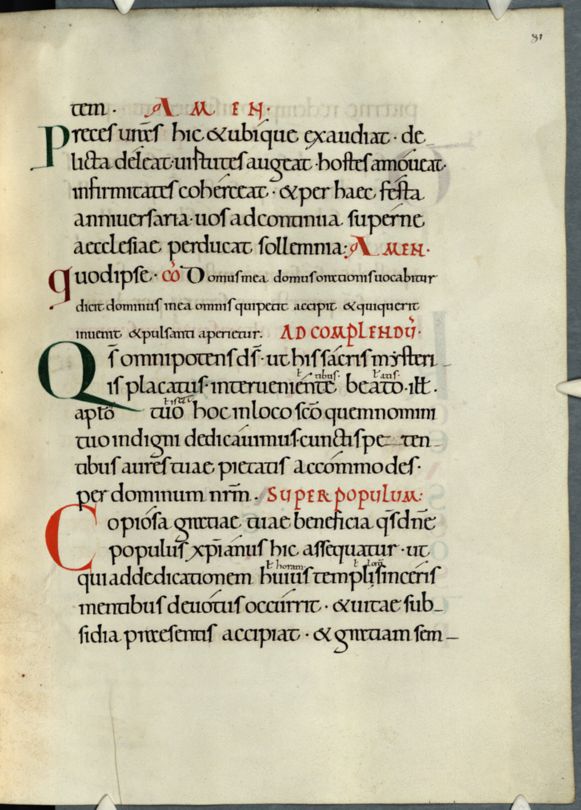 31
tem · AMEN ·
Preces ūnēs hic & ubi que exaudiat · de
licta deleat · uirtutes augeat · hostes amoueat ·
infirmitates cohérceat · & per haec festa
anniuersaria · uos ad continua supérne
aecclesiae perducat sollemnia : AMEN ·
quod ipse · ꝏ̄ Domus mea domus orationis uocabitur
dicit dominus in ea omnis qui petit accipit & qui querit
inuenit & pulsanti aperietur. AD COMPLENDŪ ·
Qs̄ omnipotens ds̄ · ut his sacris mẏsteri
is placatus · interueniente beato · ill̄.
aptō tuo hoc in loco sc̄o quem nomini
tuo indigni dedicauimus cunctis pe ten
tibus aures tuae pietatis accommodes ·
per dominum nr̄m · SUPER POPULUM :
Copiósa gratiae tuae beneficia qs̄ dn̄e
populus xp̄ianus hic assequatur · ut
qui ad dedicationem huius templi sincéris
mentibus deuotus occurrit · & uitae sub
sidia praesentis accipiat · & gratiam sem